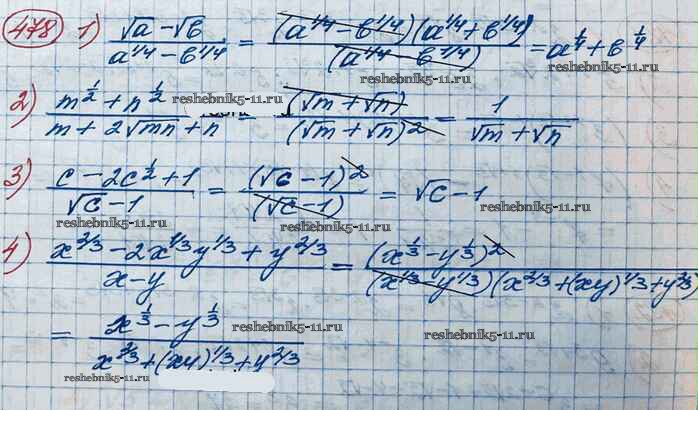 478 1) (√a − √b)/(a^1/4 − b^1/4) = ((a^1/4 − b^1/4)(a^1/4 + b^1/4))/((a^1/4 − b^1/4)) = a^1/4 + b^1/4
reshebnik5-11.ru
2) (m^1/2 + n^1/2)/(m + 2√mn + n) = (√m + √n)/(√m + √n)^2 = 1/(√m + √n)
reshebnik5-11.ru
reshebnik5-11.ru
3) (c − 2c^1/2 + 1)/(√c − 1) = (√c − 1)^2/(√c − 1) = √c − 1
reshebnik5-11.ru reshebnik5-11.ru
4) (x^2/3 − 2x^1/3 y^1/3 + y^2/3)/(x − y) = (x^1/3 − y^1/3)^2/((x^1/3 − y^1/3)(x^2/3 + (xy)^1/3 + y^2/3))
= (x^1/3 − y^1/3)/(x^2/3 + (xy)^1/3 + y^2/3)
reshebnik5-11.ru reshebnik5-11.ru
reshebnik5-11.ru